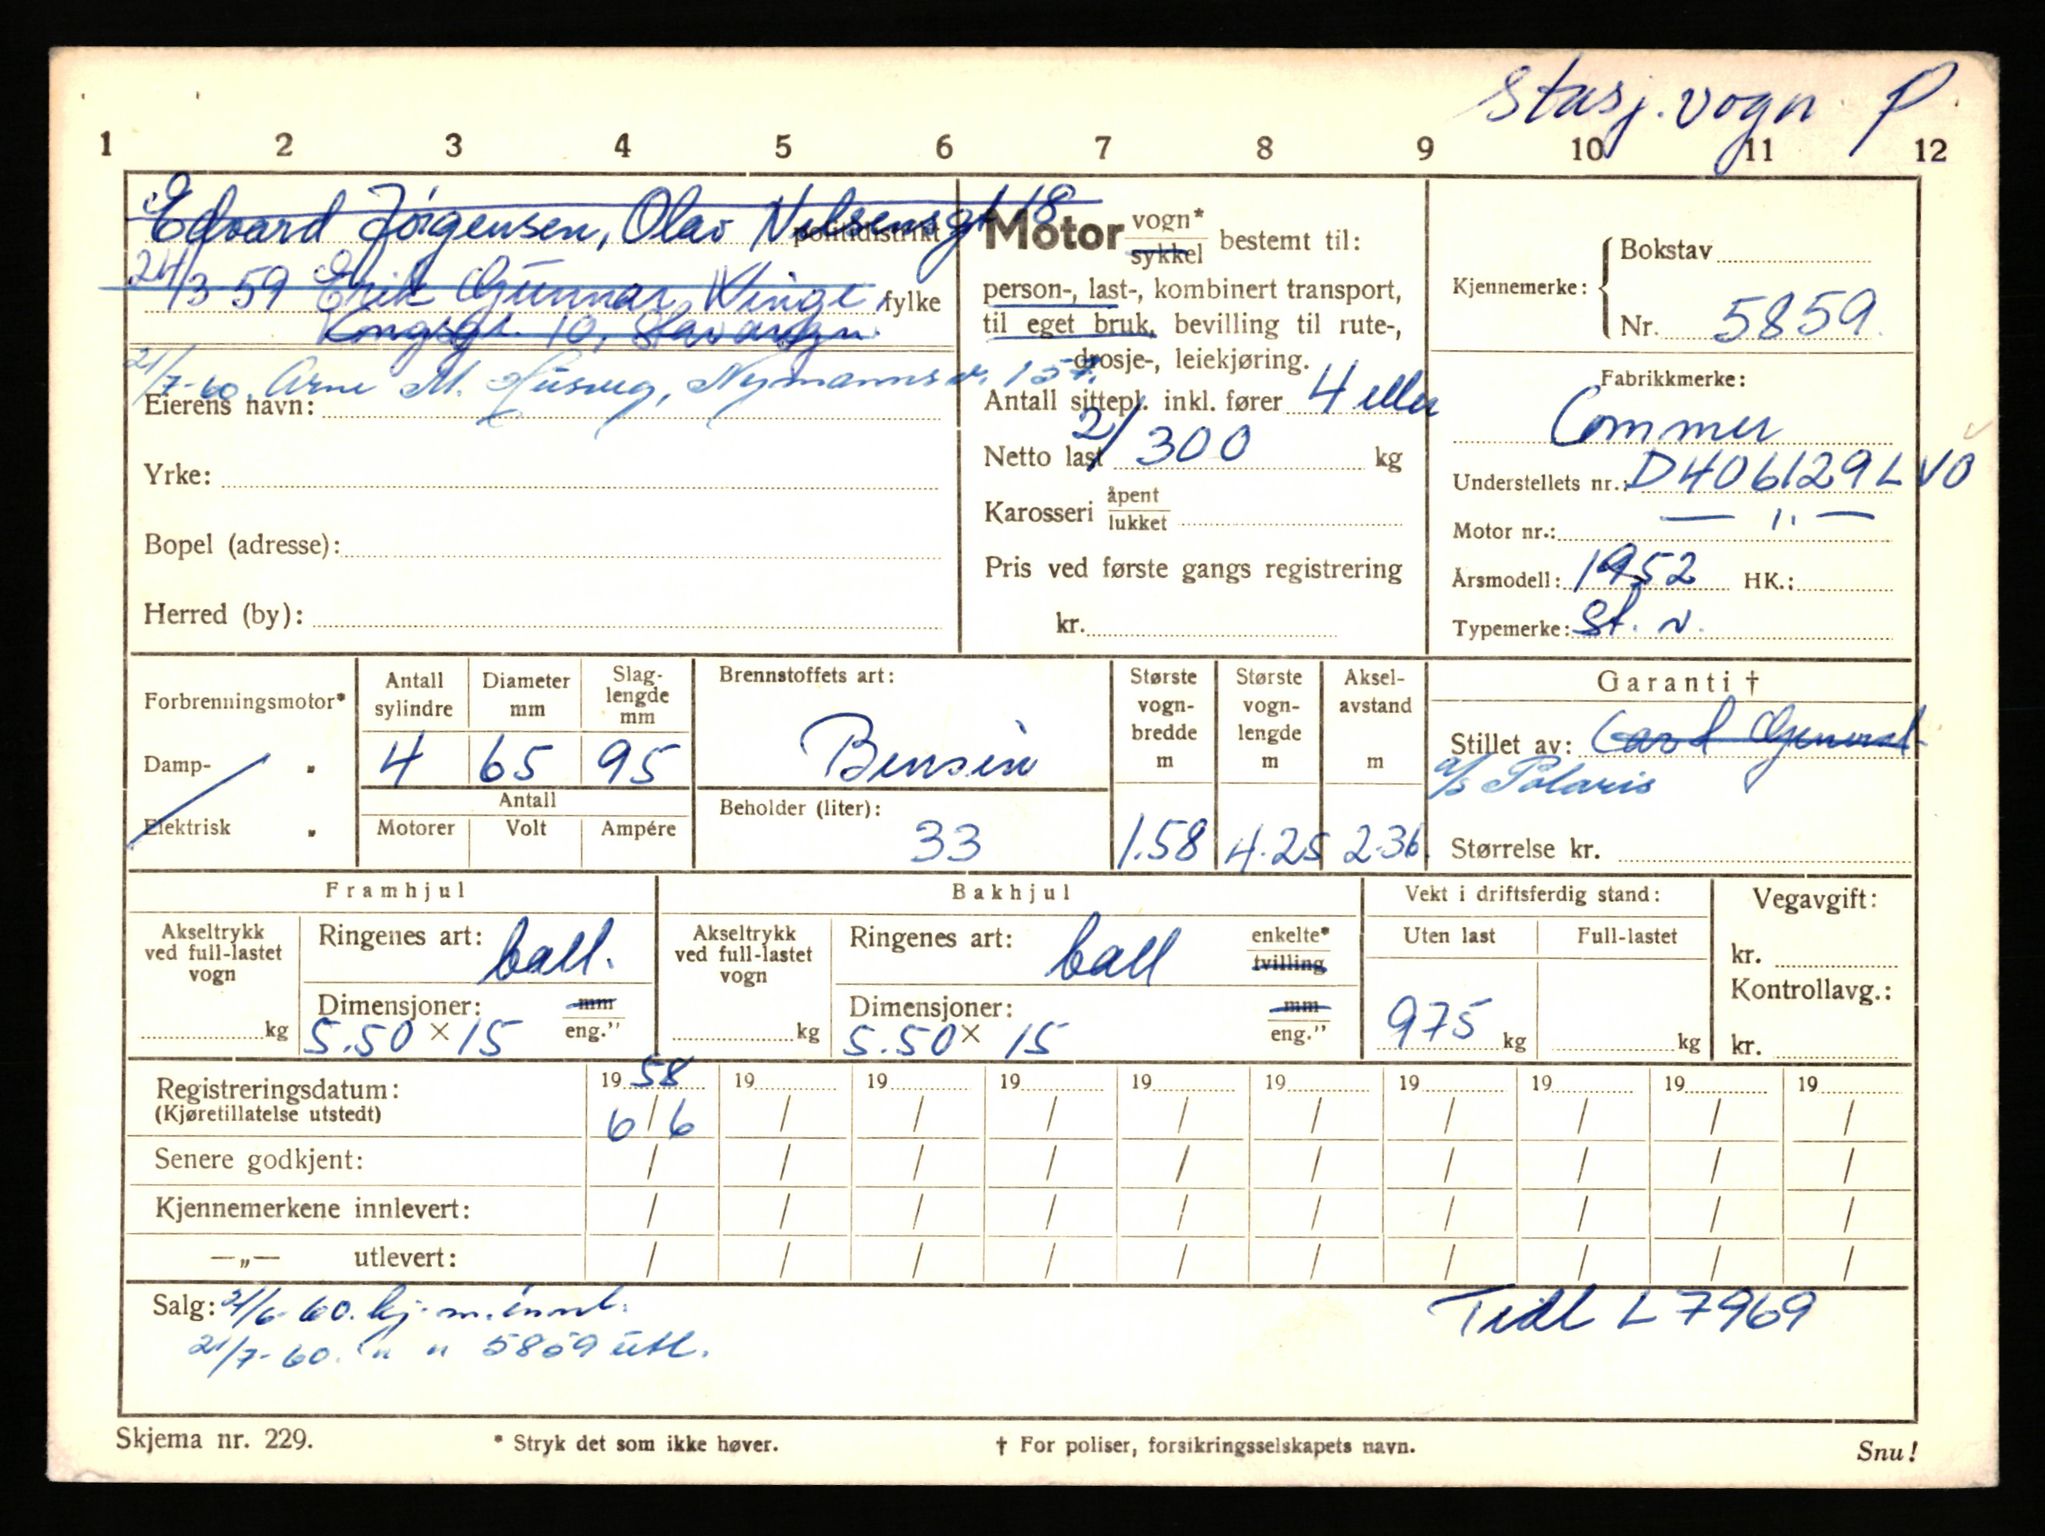 Stasj. vogn P.
1 2 3 4 5 6 7 8 9 10 11 12
Edvard Jørgensen, Olav Nilsensgt 18
politidistrikt
24/3-59 Erik Gunnar Winge,
fylke
Kongsgt. 10, Stavanger.
21/7-60. Arne M. Husveg, Nymannsv. 157.
Eierens navn:
Yrke:
Bopel (adresse):
Herred (by):
Motor vogn* sykkel bestemt til:
person-, last-, kombinert transport,
til eget bruk, bevilling til rute-,
drosje-, leiekjøring.
Antall sittepl. inkl. fører 4 eller
Netto last 2/300 kg
Karosseri åpent lukket
Pris ved første gangs registrering
kr.
Kjennemerke: Bokstav
Nr. 5859.
Fabrikkmerke:
Commer
Understellets nr.: D406129LVO
Motor nr.: — " —
Årsmodell: 1952 HK.:
Typemerke: St. v.
Forbrenningsmotor*
Damp- "
Elektrisk "
Antall sylindre
4
Diameter mm
65
Slag-
lengde
mm
95
Antall
Motorer Volt Ampére
Brennstoffets art:
Bensin
Beholder (liter):
33
Største
vogn-
bredde
m
1.58
Største
vogn-
lengde
m
4.25
Aksel-
avstand
m
2.36.
Garanti †
Stillet av: Carl
a/s Polaris
Størrelse kr.
Framhjul
Akseltrykk
ved full-lastet
vogn
kg
Ringenes art: ball.
Dimensjoner: mm
5.50 × 15 eng."
Bakhjul
Akseltrykk
ved full-lastet
vogn
kg
Ringenes art: ball enkelte* tvilling
Dimensjoner: mm
5.50 × 15 eng."
Vekt i driftsferdig stand:
Uten last Full-lastet
975 kg kg
Vegavgift:
kr.
Kontrollavg.:
kr.
Registreringsdatum: 1958 19 19 19 19 19 19 19 19 19
(Kjøretillatelse utstedt) 6/6 / / / / / / / / /
Senere godkjent: / / / / / / / / / /
Kjennemerkene innlevert: / / / / / / / / / /
—„— utlevert: / / / / / / / / / /
Salg: 21/6-60. kj.m. innl.
Tidl L 7969
21/7-60. " " 5859 utl.
Skjema nr. 229.
* Stryk det som ikke høver.
† For poliser, forsikringsselskapets navn.
Snu!